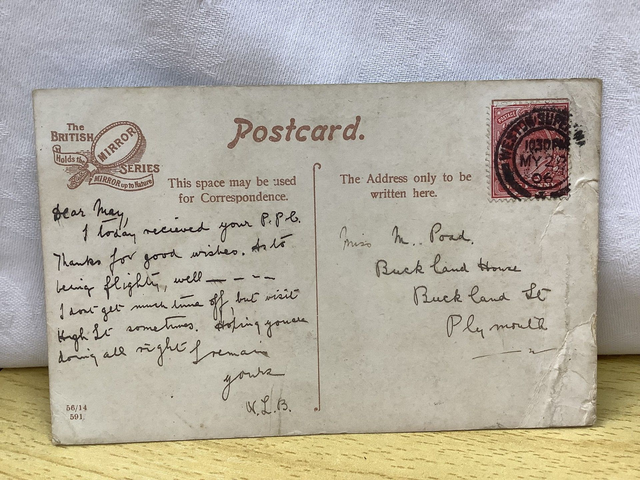 The
BRITISH
MIRROR
Holds the
SERIES
MIRROR up to Nature
Postcard.
This space may be used
for Correspondence.
The Address only to be
written here.
POSTAGE
WESTON-SUPER-MARE
1030PM
MY 27
06
Dear May,
I today recieved your P.P.C.
Thanks for good wishes. As to
being flighty, well – – – –
I dont get much time off, but visit
High St sometimes. Hoping you are
doing all right I remain
yours
W.L.B.
Miss M. Poad.
Buckland House
Buckland St
Plymouth
56/14
591